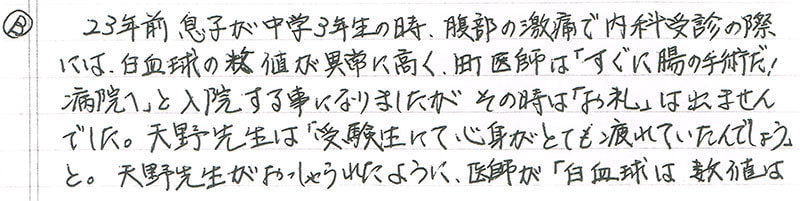 Ⓑ 23年前息子が中学3年生の時、腹部の激痛で内科受診の際
には、白血球の数値が異常に高く、町医師は「すぐに腸の手術だ！
病院へ」と入院する事になりましたが その時は「お礼」は出ません
でした。天野先生は「受験生にて心身がとても疲れていたんでしょう」
と。天野先生がおっしゃられたように、医師が「白血球は 数値は